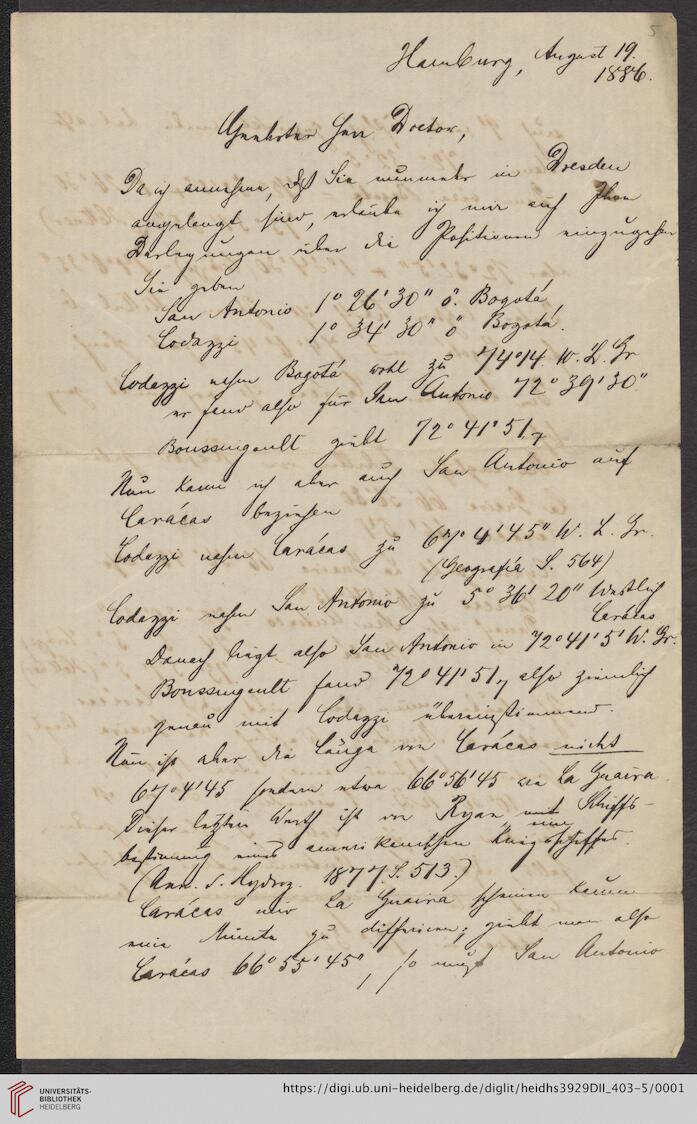 5
Hamburg, August 19.
1886.
Geehrter Herr Doctor,
Da ich annehme, daß Sie nunmehr in Dresden
angelangt sind, erlaube ich mir auf Ihre
Darlegungen über die Positionen einzugehen
Sie geben
San Antonio 1° 26' 30" ö. Bogotá,
Codazzi 1° 34' 30" ö Bogotá.
Codazzi nahm Bogotá wohl zu 74°14 W. L. Gr
er fand also für San Antonio 72° 39' 30".
Boussingault giebt 72° 41' 51,7
Nun kann ich aber auch San Antonio auf
Carácas beziehen
Codazzi nahm Carácas zu 67° 4' 45" W. L. Gr.
(Geografía S. 564)
Codazzi nahm San Antonio zu 5° 36' 20" Westlich
Carácas
Danach liegt also San Antonio in 72° 41' 5' W. Gr.
Boussingault fand 72° 41' 51,7 also ziemlich
genau mit Codazzi übereinstimmend.
Nun ist aber die Länge von Carácas nicht
67° 4' 45 sondern etwa 66° 56' 45 wie La Guaira.
Dieser letzte Werth ist von Ryan, mit Schiffs-
bestimmung eines amerikanischen Kriegsschiffes.
(Ann. d. Hydrog. 1877. S. 513.)
Carácas und La Guaira scheinen kaum
eine Minute zu differiren; giebt man also
Carácas 66° 55' 45", so muß San Antonio
UNIVERSITÄTS-
BIBLIOTHEK
HEIDELBERG
https://digi.ub.uni-heidelberg.de/diglit/heidhs3929DII_403-5/0001